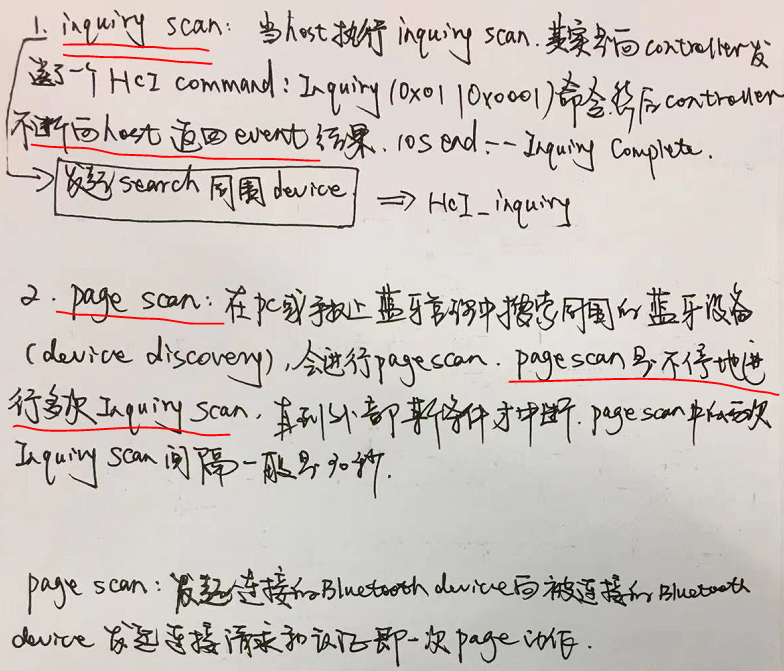 1. inquiry scan: 当host执行inquiry scan.其实是向controller发
送了一个HCI command: Inquiry (0x01|0x0001)命令.然后controller
不断向host返回event结果. 10s end -- Inquiry Complete.
发起search周围device => HCI_inquiry
2. page scan: 在pc或手机上蓝牙管理中搜索周围的蓝牙设备
(device discovery), 会进行pagescan. pagescan是不停地进
行多次Inquiry scan, 直到外部条件才中断. page scan中的两次
Inquiry scan间隔一般是30秒.
page scan: 发起连接的Bluetooth device向被连接的Bluetooth
device发起连接请求和认证即一次page动作.